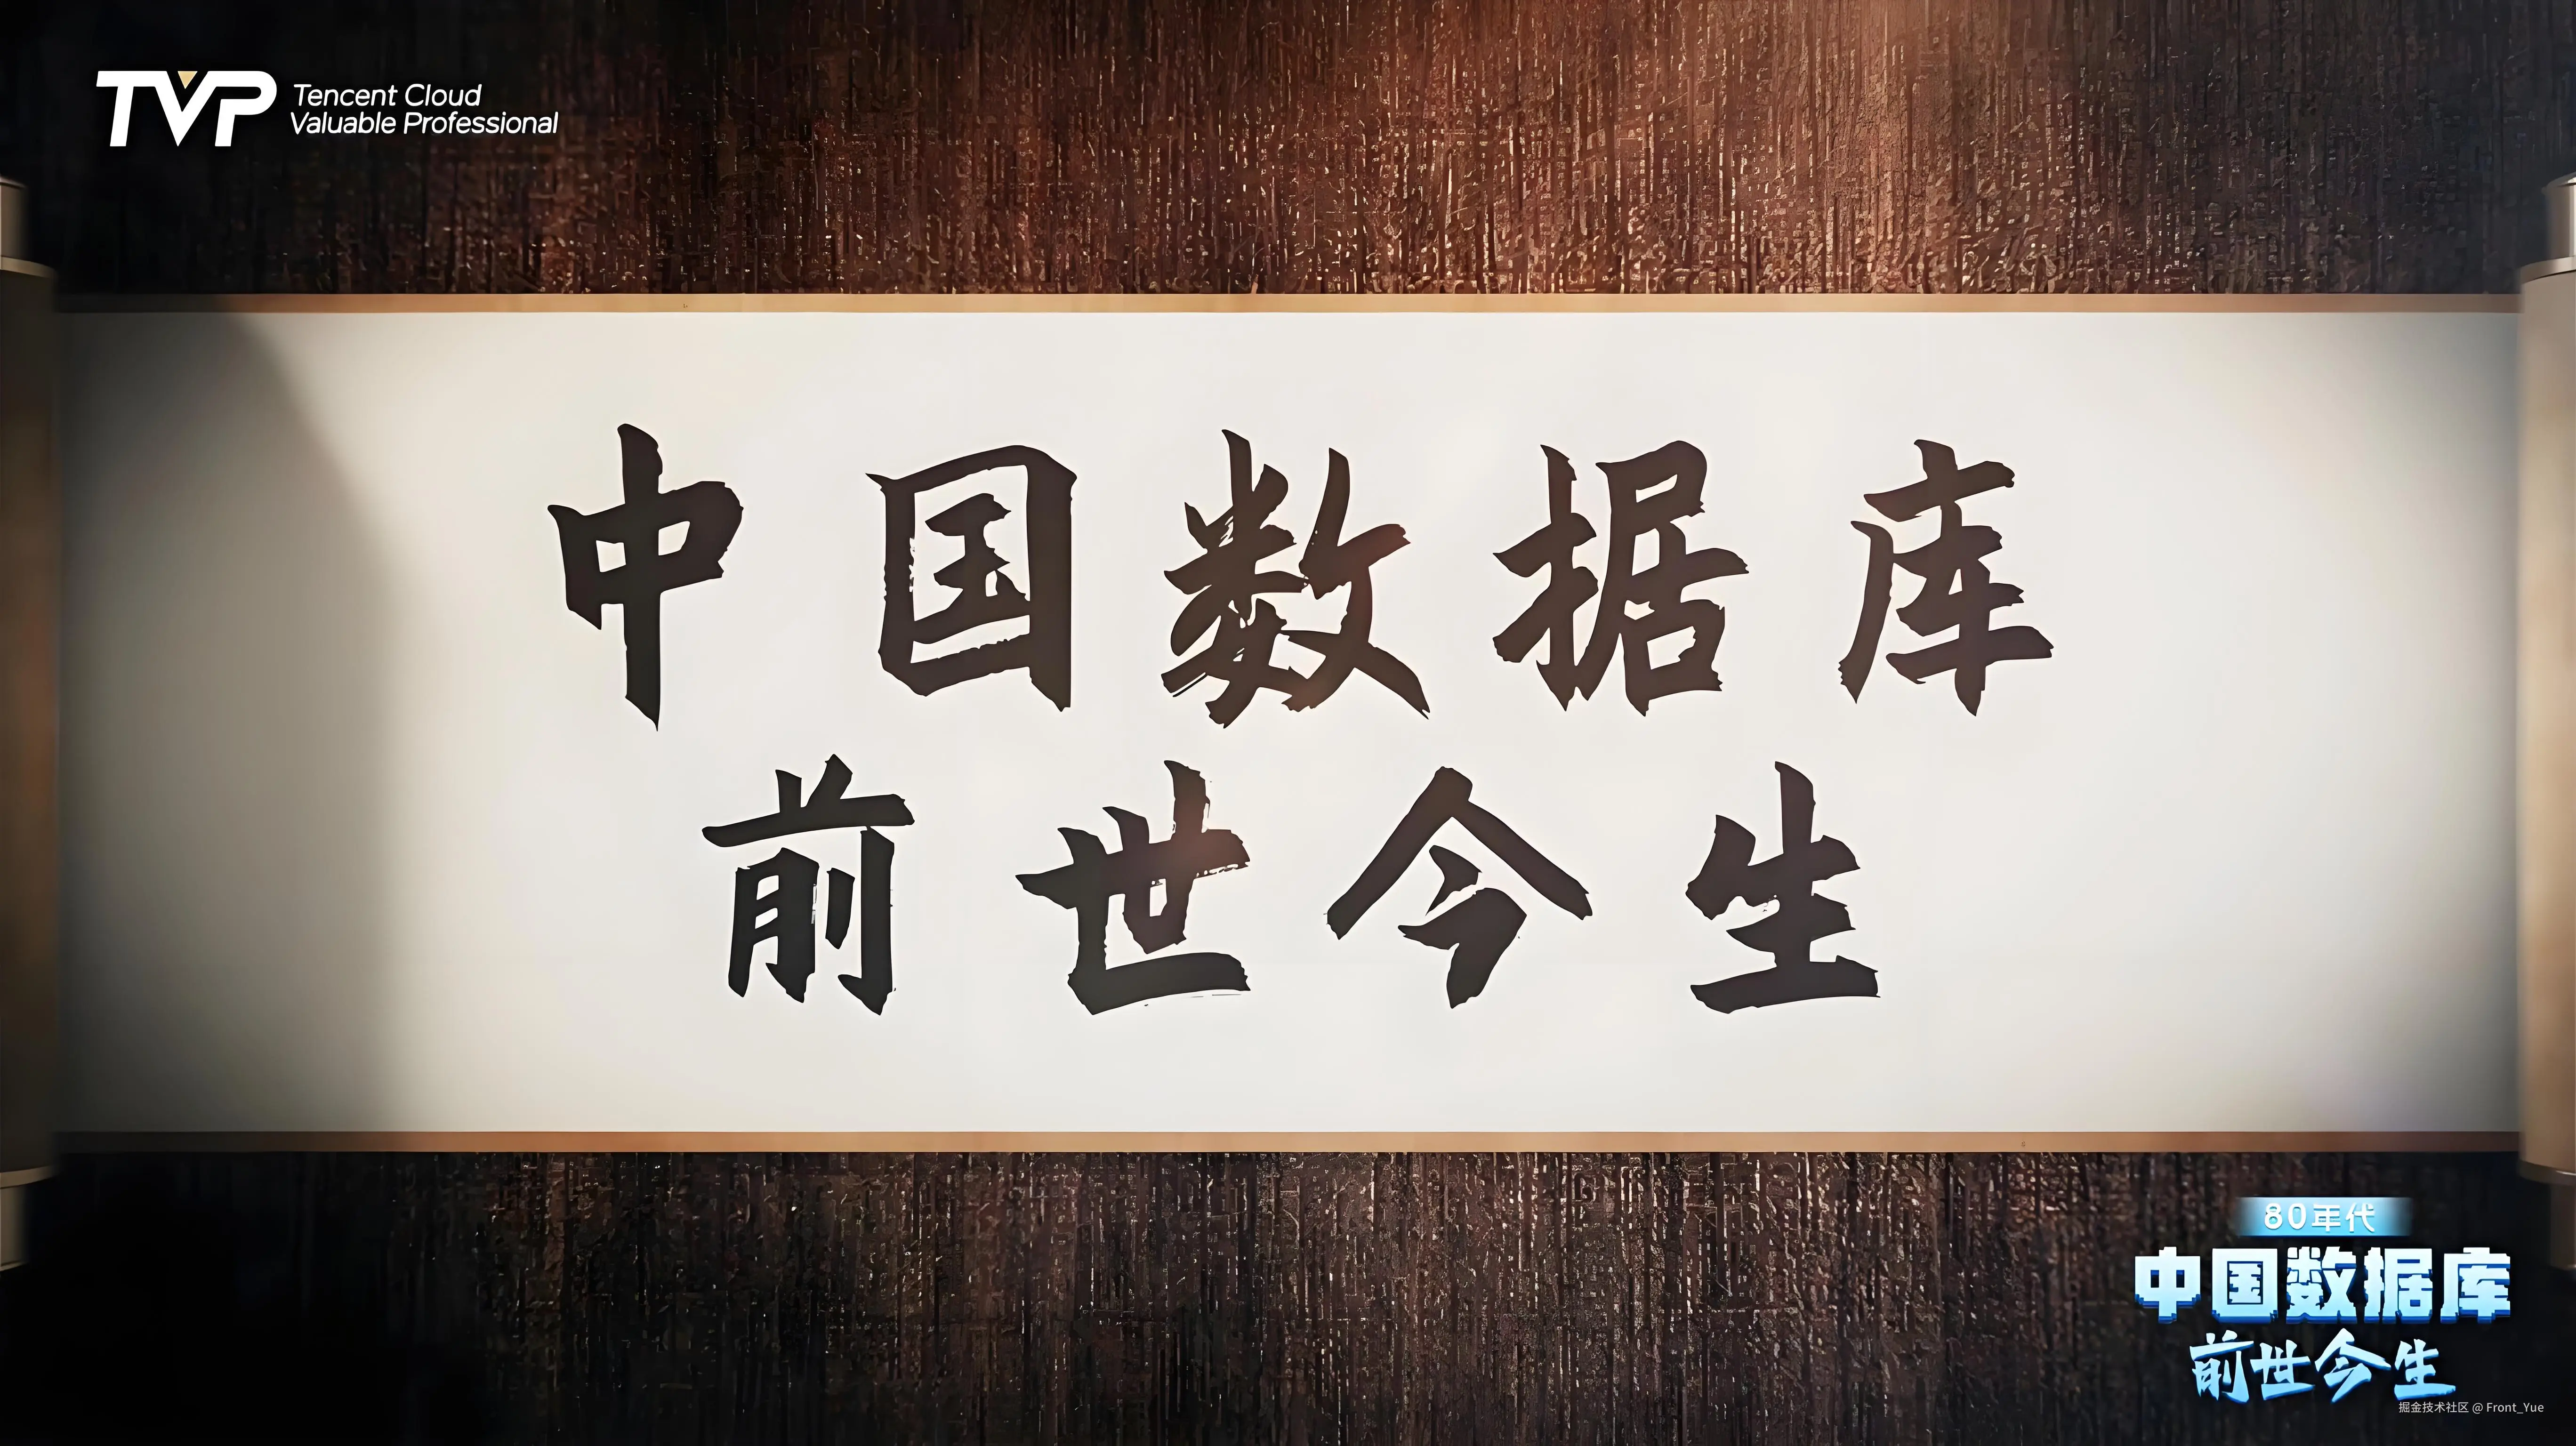 TVP
Tencent Cloud
Valuable Professional
中国数据库
前世今生
80年代
中国数据库
前世今生
掘金技术社区 @ Front_Yue